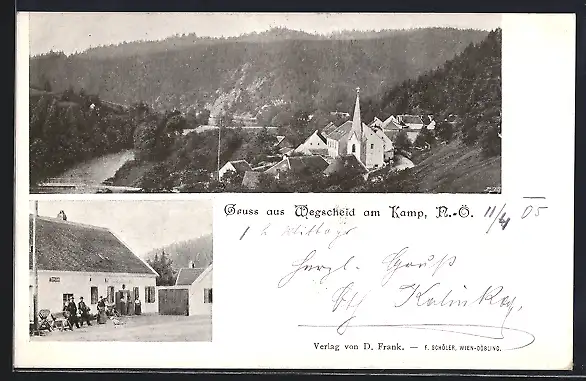 Gruss aus Wegscheid am Kamp, N.-Ö. 11/4 05
1 h Mittags
Herzl. Gruß
Kalinka
Verlag von D. Frank. — F. SCHÖLER, WIEN-DÖBLING.